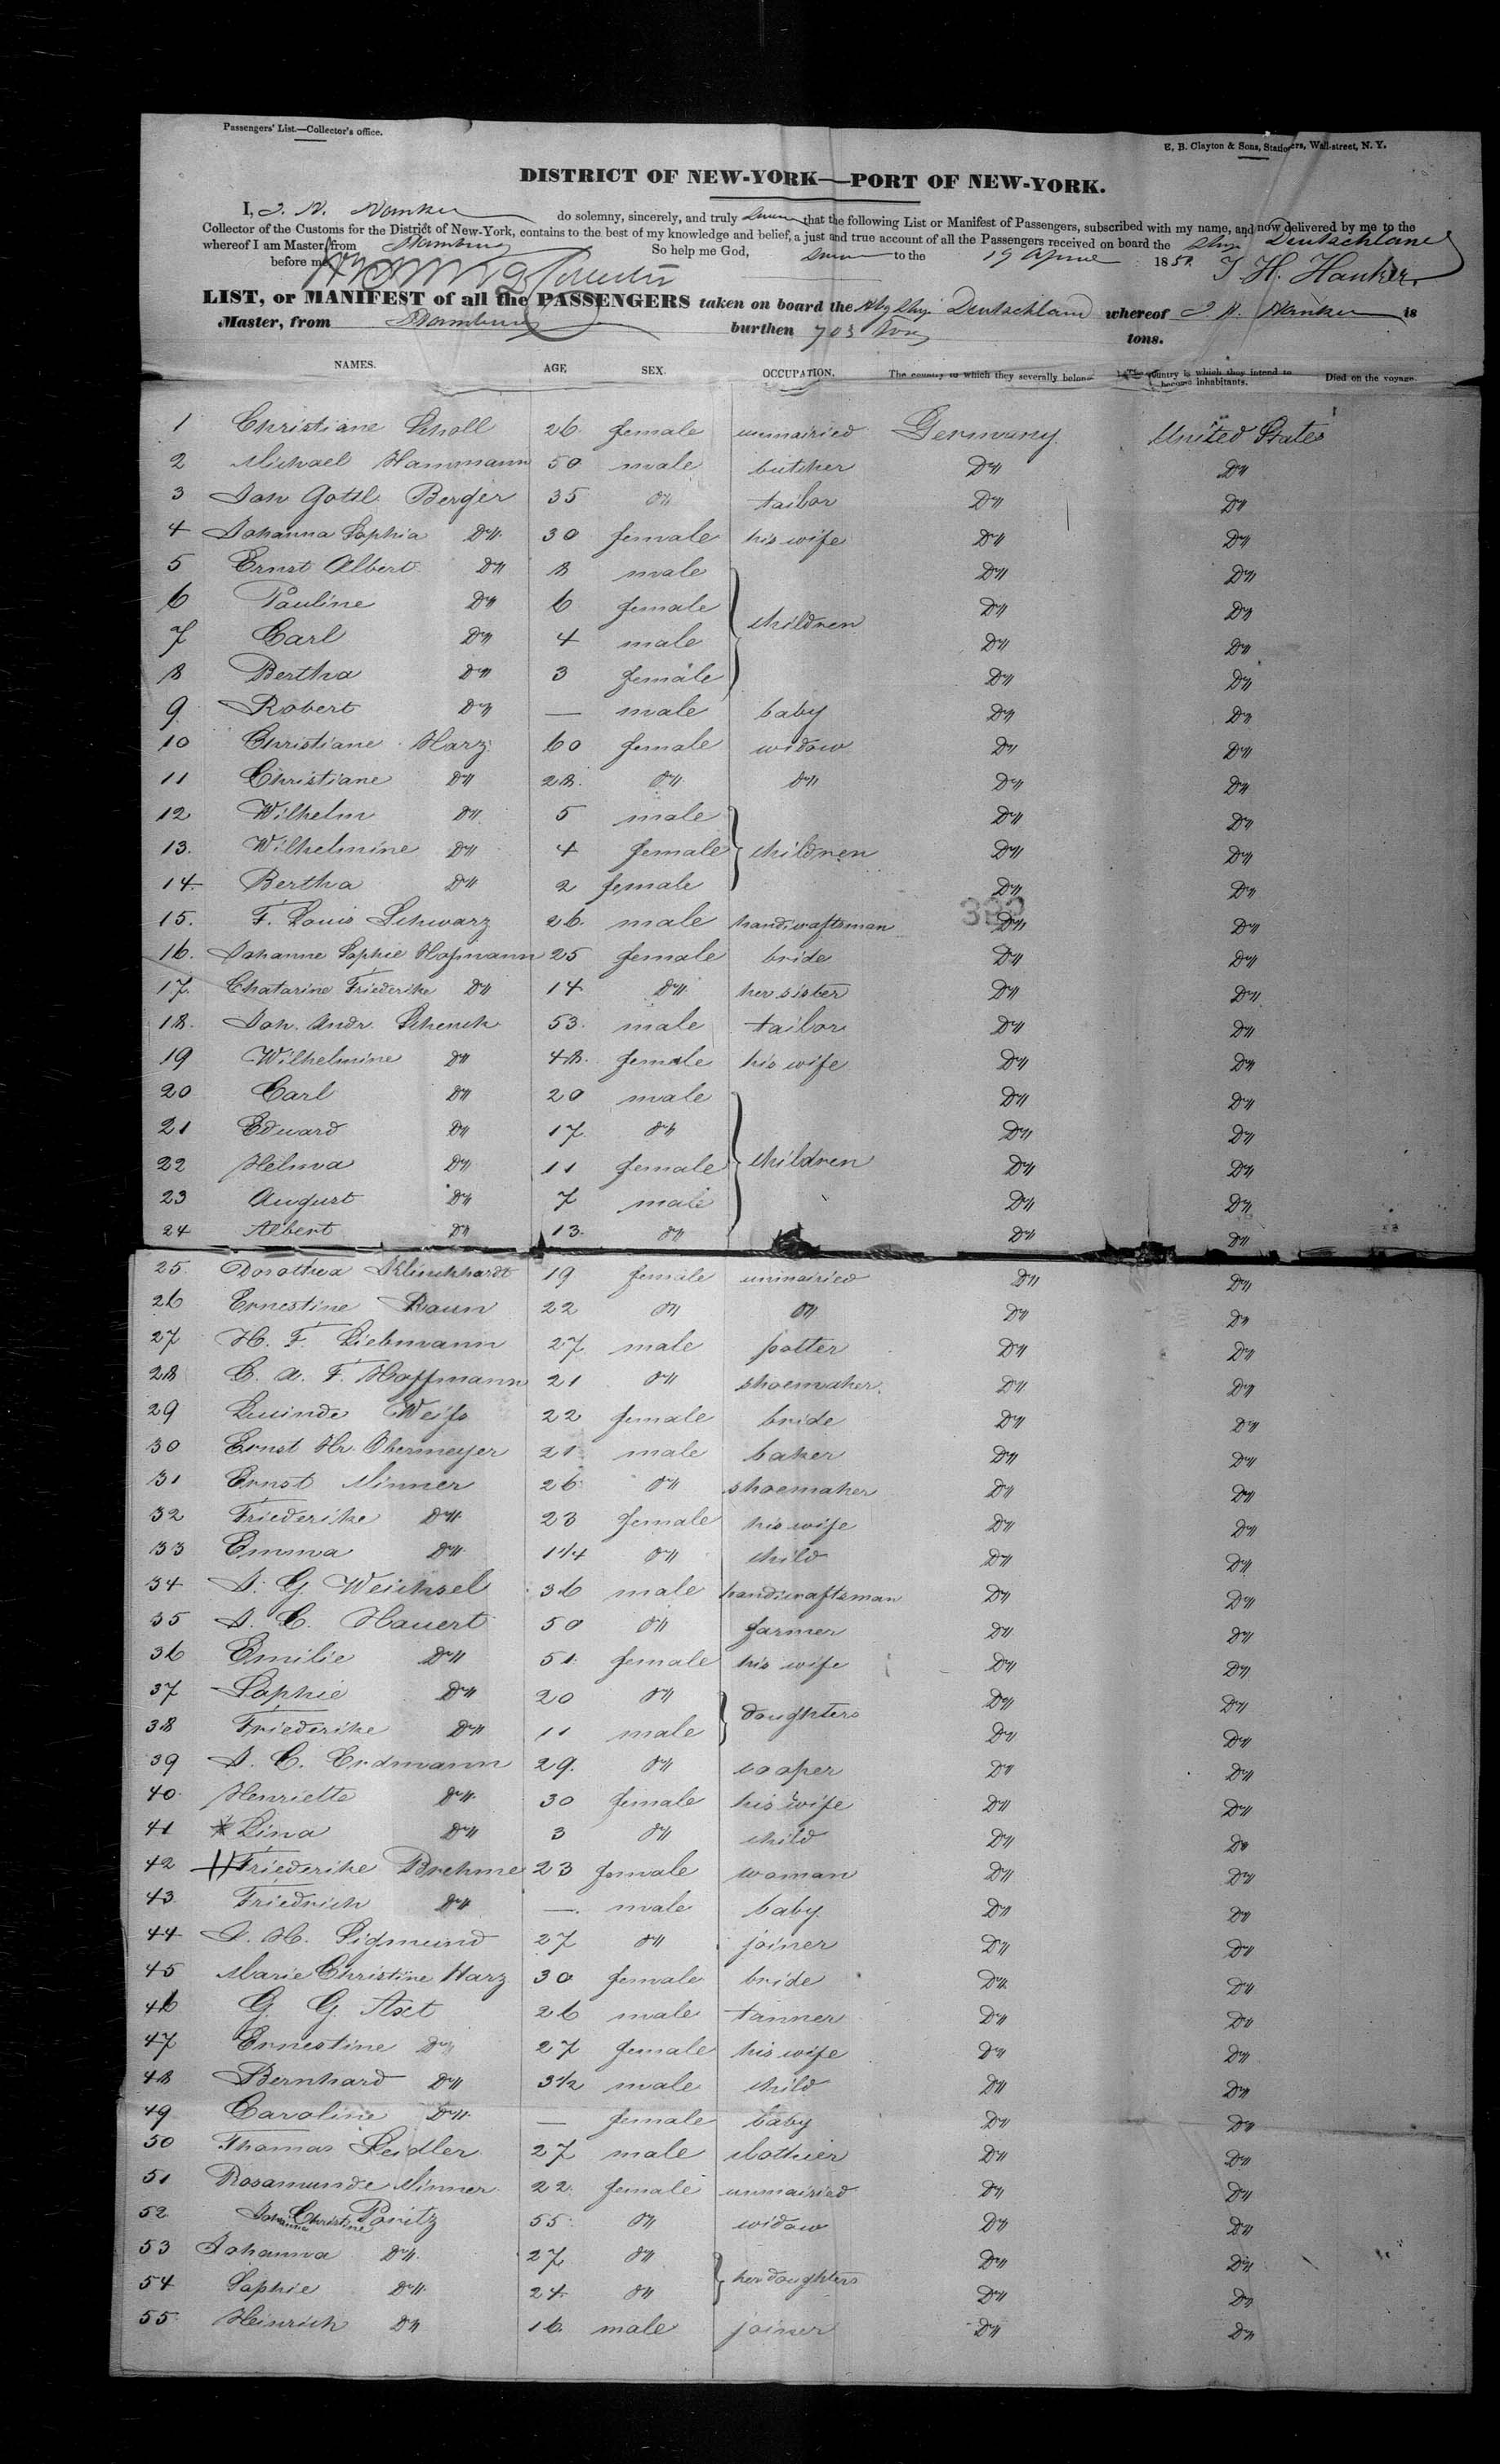 Passengers' List.—Collector's office.
E. B. Clayton & Sons, Stationers, Wall-street, N. Y.
DISTRICT OF NEW-YORK—PORT OF NEW-YORK.
I, J. H. Hanker do solemny, sincerely, and truly swear that the following List or Manifest of Passengers, subscribed with my name, and now delivered by me to the
Collector of the Customs for the District of New-York, contains to the best of my knowledge and belief, a just and true account of all the Passengers received on board the Ship Deutschland
whereof I am Master, from Hamburg So help me God,
before me to the 19 April 185 J H. Hanker
LIST, or MANIFEST of all the PASSENGERS taken on board the Hbg Ship Deutschland whereof J. H. Hanker is
Master, from Hamburg burthen 703 tons.
NAMES. AGE SEX. OCCUPATION. The country to which they severally belong The country in which they intend to become inhabitants. Died on the voyage.
1 Christiane Scholl 26 female unmairied Germany United States
2 Michael Hammann 50 male butcher Do Do
3 Joh Gottl. Berger 35 do tailor Do Do
4 Johanna Sophia Do 30 female his wife Do Do
5 Ernst Albert Do 8 male Do Do
6 Pauline Do 6 female children Do Do
7 Carl Do 4 male Do Do
8 Bertha Do 3 female Do Do
9 Robert Do — male baby Do Do
10 Christiane Harz 60 female widow Do Do
11 Christiane Do 28. do do Do Do
12 Wilhelm Do 5 male Do Do
13. Wilhelmine Do 4 female children Do Do
14 Bertha Do 2 female Do Do
15. F. Louis Schwarz 26. male handicraftsman Do Do
16. Johanne Sophie Hofmann 25 female bride Do Do
17. Chatarine Friederike Do 14 Do her sister Do Do
18. Joh. Andr. Schenck 53. male tailor Do Do
19 Wilhelmine Do 48. female his wife Do Do
20 Carl Do 20 male Do Do
21 Edward Do 17. do Do Do
22 Helma Do 11 female children Do Do
23 August Do 7 male Do Do
24 Albert Do 13. do Do Do
25. Dorothea Klinckhardt 19 female unmairied Do Do
26 Ernestine Raun 22 do do Do Do
27 H. F. Liebmann 27 male potter Do Do
28 C. A. F. Hoffmann 21 do shoemaker. Do Do
29 Luinde Weiss 22 female bride Do Do
30 Ernst Hr. Obermeyer 21 male baker Do Do
31 Ernst Minner 26 do shoemaker Do Do
32 Friederike Do 23 female his wife Do Do
33 Emma Do 1 1/4 do child Do Do
34 J. G Weichsel 36 male handicraftsman Do Do
35 J. C. Hauert 50 do farmer Do Do
36 Emilie Do 51. female his wife Do Do
37 Sophie Do 20 do daughters Do Do
38 Friederike Do 11 male Do Do
39 J. C. Erdmann 29. do cooper Do Do
40. Henriette Do 30 female his wife Do Do
41 Lina Do 3 do child Do Do
42 Friederike Brehme 23 female woman Do Do
43 Friedrich Do — male baby Do Do
44 J. H. Sigmund 27 do joiner Do Do
45 Marie Christine Harz 30 female bride Do Do
46 G. G. Axt 26 male tanner Do Do
47 Ernestine Do 27 female his wife Do Do
48 Bernhard Do 3 1/2 male child Do Do
49 Caroline Do — female baby Do Do
50 Thomas Seidler 27 male clothier Do Do
51 Rosamunde Minner 22. female unmairied Do Do
52 Johanne Christine Poritz 55. do widow Do Do
53 Johanna Do 27 do her daughters Do Do
54 Sophie Do 24 do Do Do
55 Heinrich Do 16. male joiner Do Do